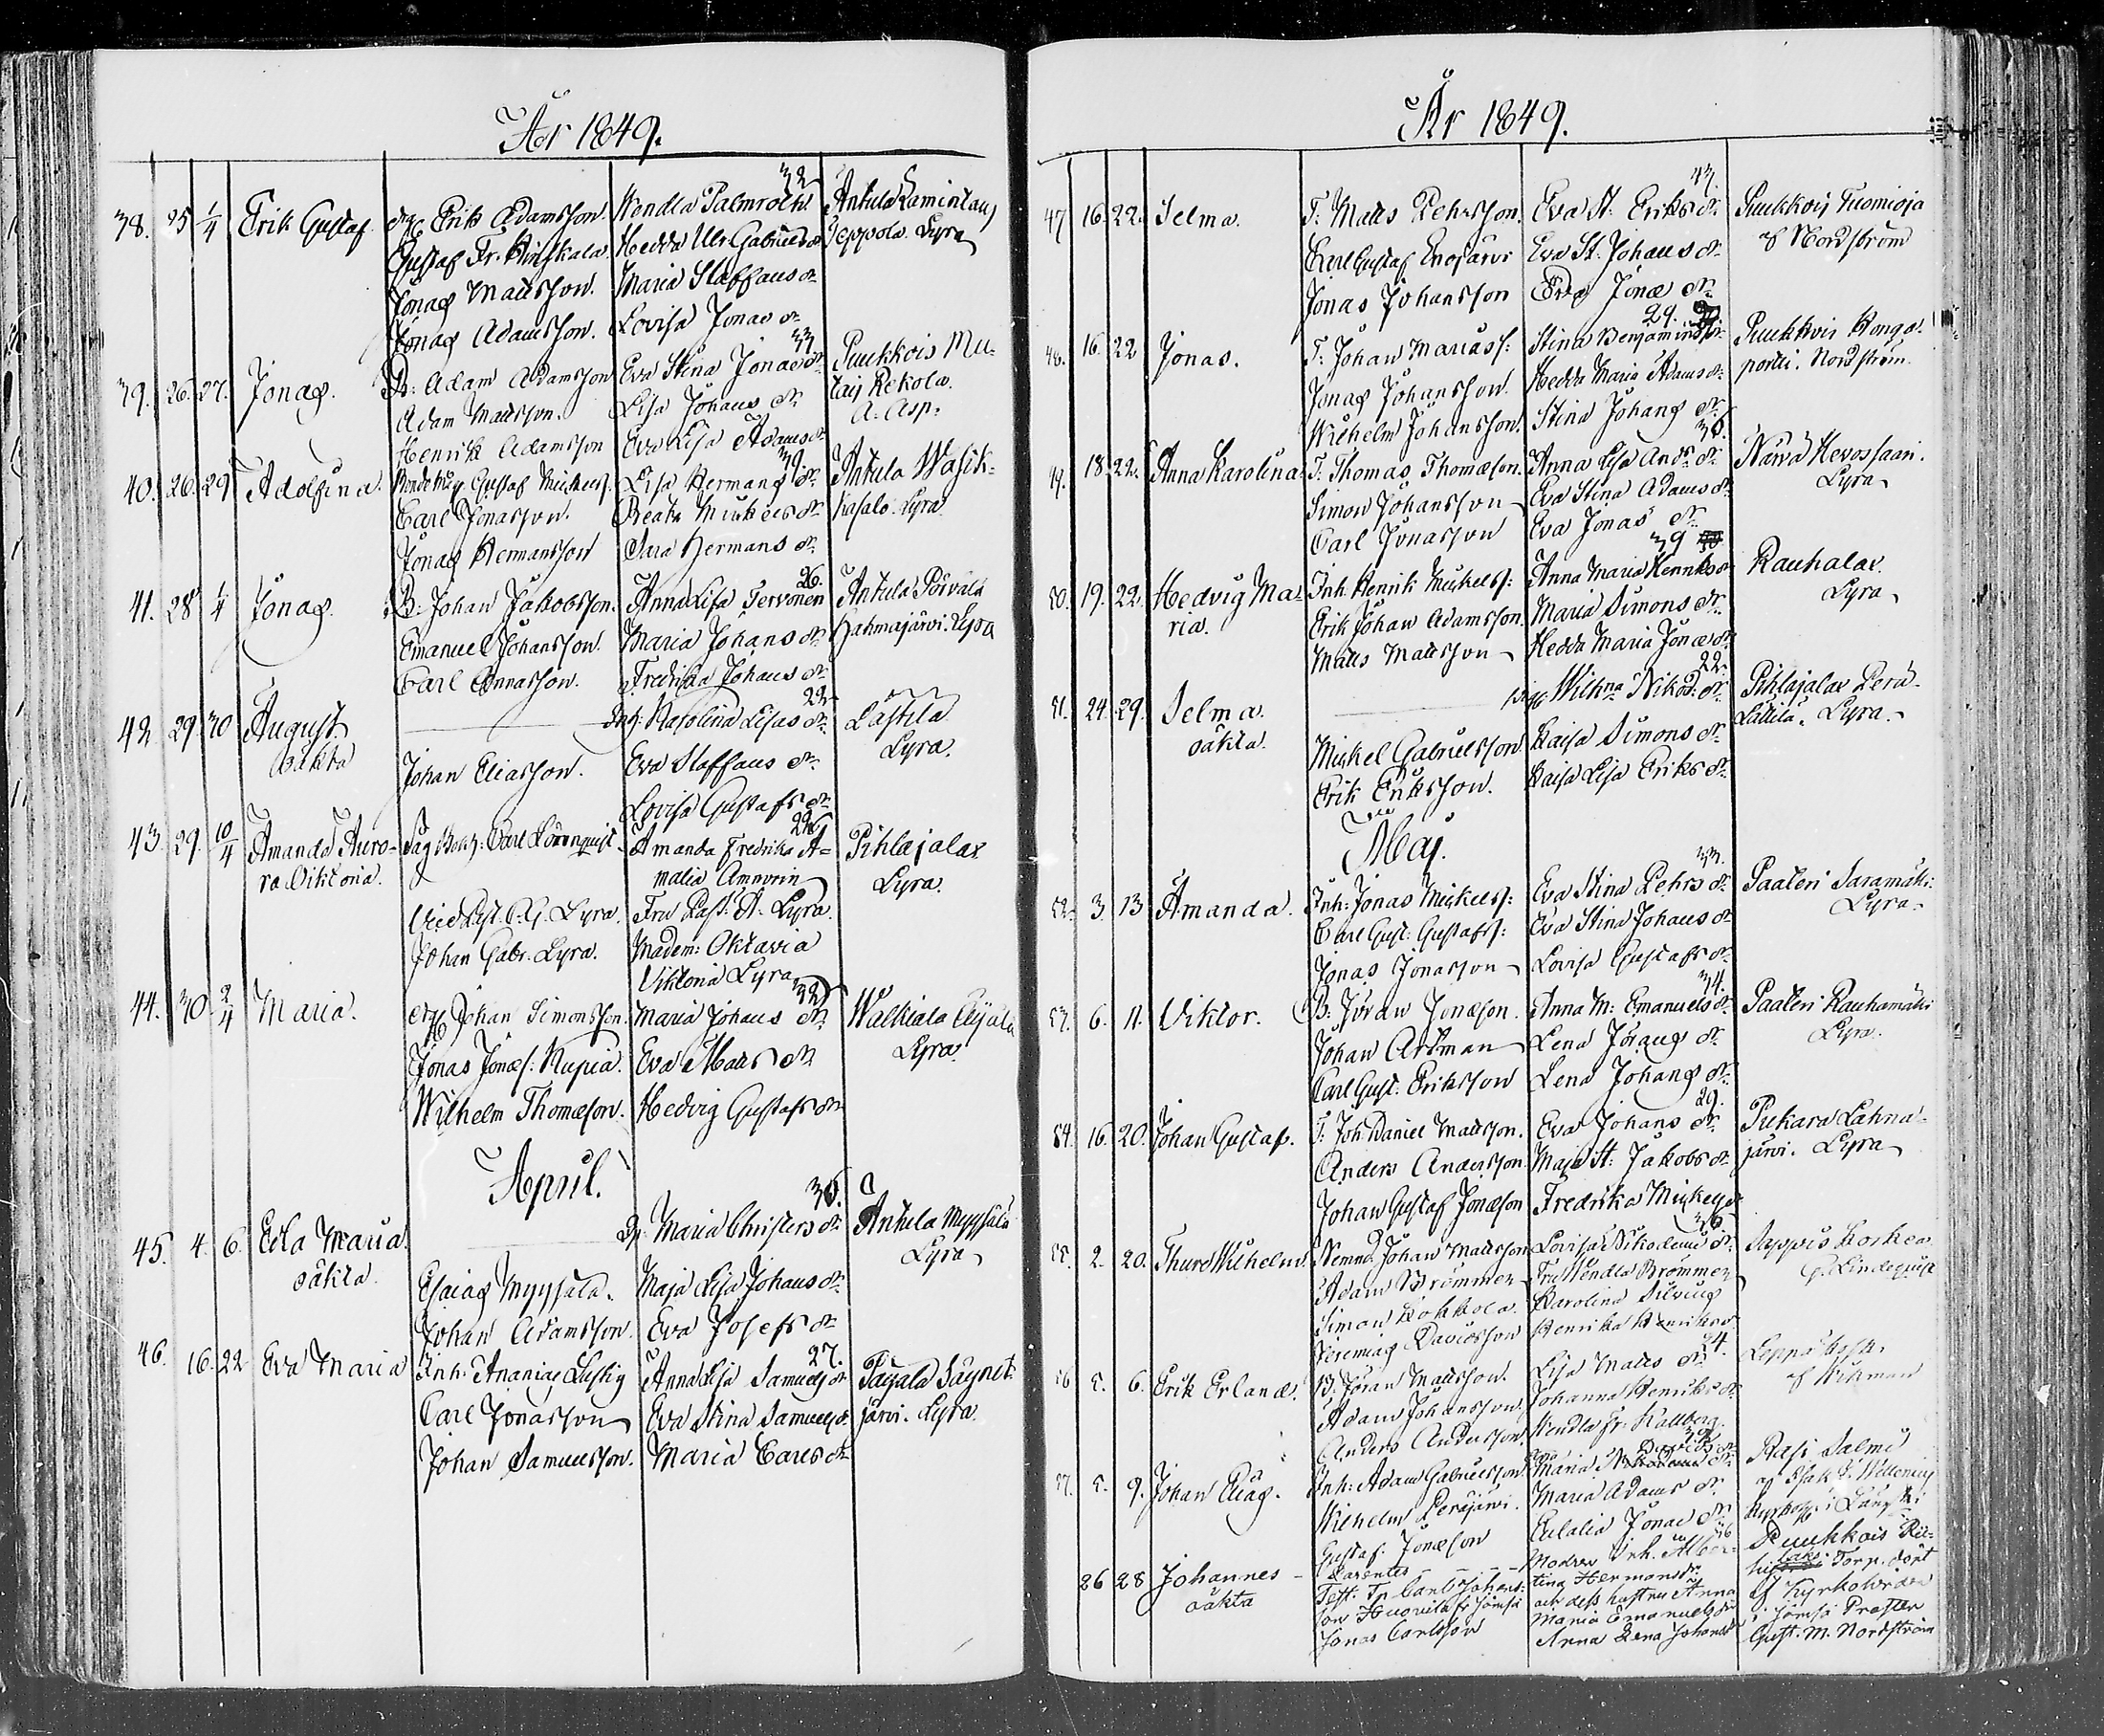 År 1849.
38. 25 1/4 Erik Gustaf. Erik Adamsson. Wendla Palmroth. 32 Antula
Gustaf Fr. Hedda Ulr. Gabriels dr. Seppola. Lyra
Jonas Mattsson. Maria Staffans dr.
Jonas Adamsson. Lovisa Jonas dr.
39. 26. 27. Jonas. B: Adam Adamsson Eva Stina Jonas dr. 33 Puukkois Mu-
Adam Mattsson. Lisa Johans dr. Rekola.
Henrik Adamsson Eva Lisa Adams dr. A: Asp.
40. 26. 29 Adolfina. Gustaf Mickelss. Lisa Hermans dr. 39 Antula Wasik-
Carl Jonasson. Beata Mickels dr. kasalo. Lyra
Jonas Hermansson Sara Hermans dr.
41. 28 1/4 Jonas. B: Johan Jakobsson. Anna Lisa Tervonen 26. Antula
Emanuel Johansson. Maria Johans dr. Hahmajärvi. Lyra
Carl Fredrika Johans dr.
42. 29. 30 August. Inh: Karolina Lisas dr. 22 Lästilä
oäkta Johan Eliasson. Eva Staffans dr. Lyra.
Lovisa Gustafs dr.
43. 29. 10/4 Amanda Auro- Carl Lönnquist Amanda Fredrika A- 22 Pihlajalax
ra Viktoria. malia Lyra.
C. G. Lyra. Fru Past: A. Lyra.
Johan Gabr. Lyra. Madem: Oktavia
Viktoria Lyra
44. 30. 2/4 Maria. Johan Simonsson. Maria Johans dr. 32 Walkiala
Jonas Jonæs. Eva Matts dr. Lyra.
Wilhelm Thomæson. Hedvig Gustafs dr.
April.
45. 4. 6. Edla Maria. Maria Christers dr. 36. Antula Myysälä
oäkta Esaias Myysälä. Maja Lisa Johans dr. Lyra
Johan Adamsson. Eva Josefs dr.
46. 16. 22 Eva Maria Inh: Ananias Lustig Anna Lisa Samuels dr. 27. Päijälä Säynet-
Carl Jonasson Eva Stina Samuels dr. järvi. Lyra.
Johan Samuelsson. Maria Carls dr.
År 1849.
47 16. 22. Selma. T: Matts Pehrsson. Eva St. Eriks dr. 43. Puukkois Tuomioja
Karl Gustaf Enojärvi Eva St. Johans dr. af Nordström
Jonas Johansson Eva Jonæ dr.
48. 16. 22 Jonas. T: Johan Mariass: Stina Benjamins dr. 29. Puukkois Hongo-
Jonas Johansson. Hedda Maria Adams dr. portti. Nordström.
Wilhelm Johansson. Stina Johans dr.
49. 18. 22. Anna Karolina. T: Thomas Thomæson. Anna Lisa Andrs dr. 36. Närvä Hevossaari.
Simon Johansson Eva Stina Adams dr. Lyra
Carl Jonasson Eva Jonas dr.
50. 19. 22. Hedvig Ma- Inh: Henrik Mickelss: Anna Maria Henriks dr. 39 Rauhalax
ria. Erik Johan Adamsson. Maria Simons dr. Lyra
Matts Mattsson Hedda Maria Jonæ dr.
51. 24. 29. Selma. Wilhna Nikod: dr. 22. Pihlajalax Perä-
oäkta. Mickel Gabrielsson. Kaisa Simons dr. Lättilä. Lyra.
Erik Eriksson. Kaisa Lisa Eriks dr.
Maj.
52. 3. 13 Amanda. Inh: Jonas Mickelss: Eva Stina Pehrs dr. 33. Paateri Saramäki:
Carl Gust: Gustafss: Eva Stina Johans dr. Lyra.
Jonas Jonasson Lovisa Gustafs dr.
53. 6. 11. Viktor. B: Jöran Jonæson. Anna M: Emanuels dr. 34. Paateri Rauhamäki
Johan Artman Lena Jörans dr. Lyra.
Carl Gust: Eriksson Lena Johans dr.
54. 16. 20. Johan Gustaf. T: Joh: Daniel Mattsson. Eva Johans dr. 29. Pukara Lahna-
Anders Andersson. Maja St: Jakobs dr. järvi. Lyra
Johan Gustaf Jonæson Fredrika Mickels dr.
55. 2. 20. Thure Wilhelm. Nemnd. Johan Mattsson Lovisa Nikodemi dr. 36. Jappis Koskea
Adam Brommer Fru Wendla Brommer G. Lindequist
Simon Kokkola. Karolina Silvius
Jeremias Davidsson Henrika Henriks dr.
56 5. 6. Erik Erland. B. Jöran Mattsson. Lisa Matts dr. 34. Leppäkoski.
Adam Johansson. Johanna Henriks dr. af Wikman
Anders Andersson. Wendla Fr. Kallberg.
57. 5. 9. Johan Elias. Inh: Adam Gabrielsson. Maria Davids dr. Rasi Salmi
Wilhelm Peräjärvi. Maria Adams dr.
Gustaf. Jonæson Eulalia Jonæ dr.
26 28 Johannes Parentes Modren Inh. Alber- Puukkois
oäkta Test: Carl Johans- tina Hermansdr. Torp. döpt
son Huorila fr. Jämsä och dess hustru Anna af Kyrkoherden
Jonas Carlsson Maria Emanuelsdr i Jämsä Prosten
Anna Lena Johansdr Gust. M. Nordström